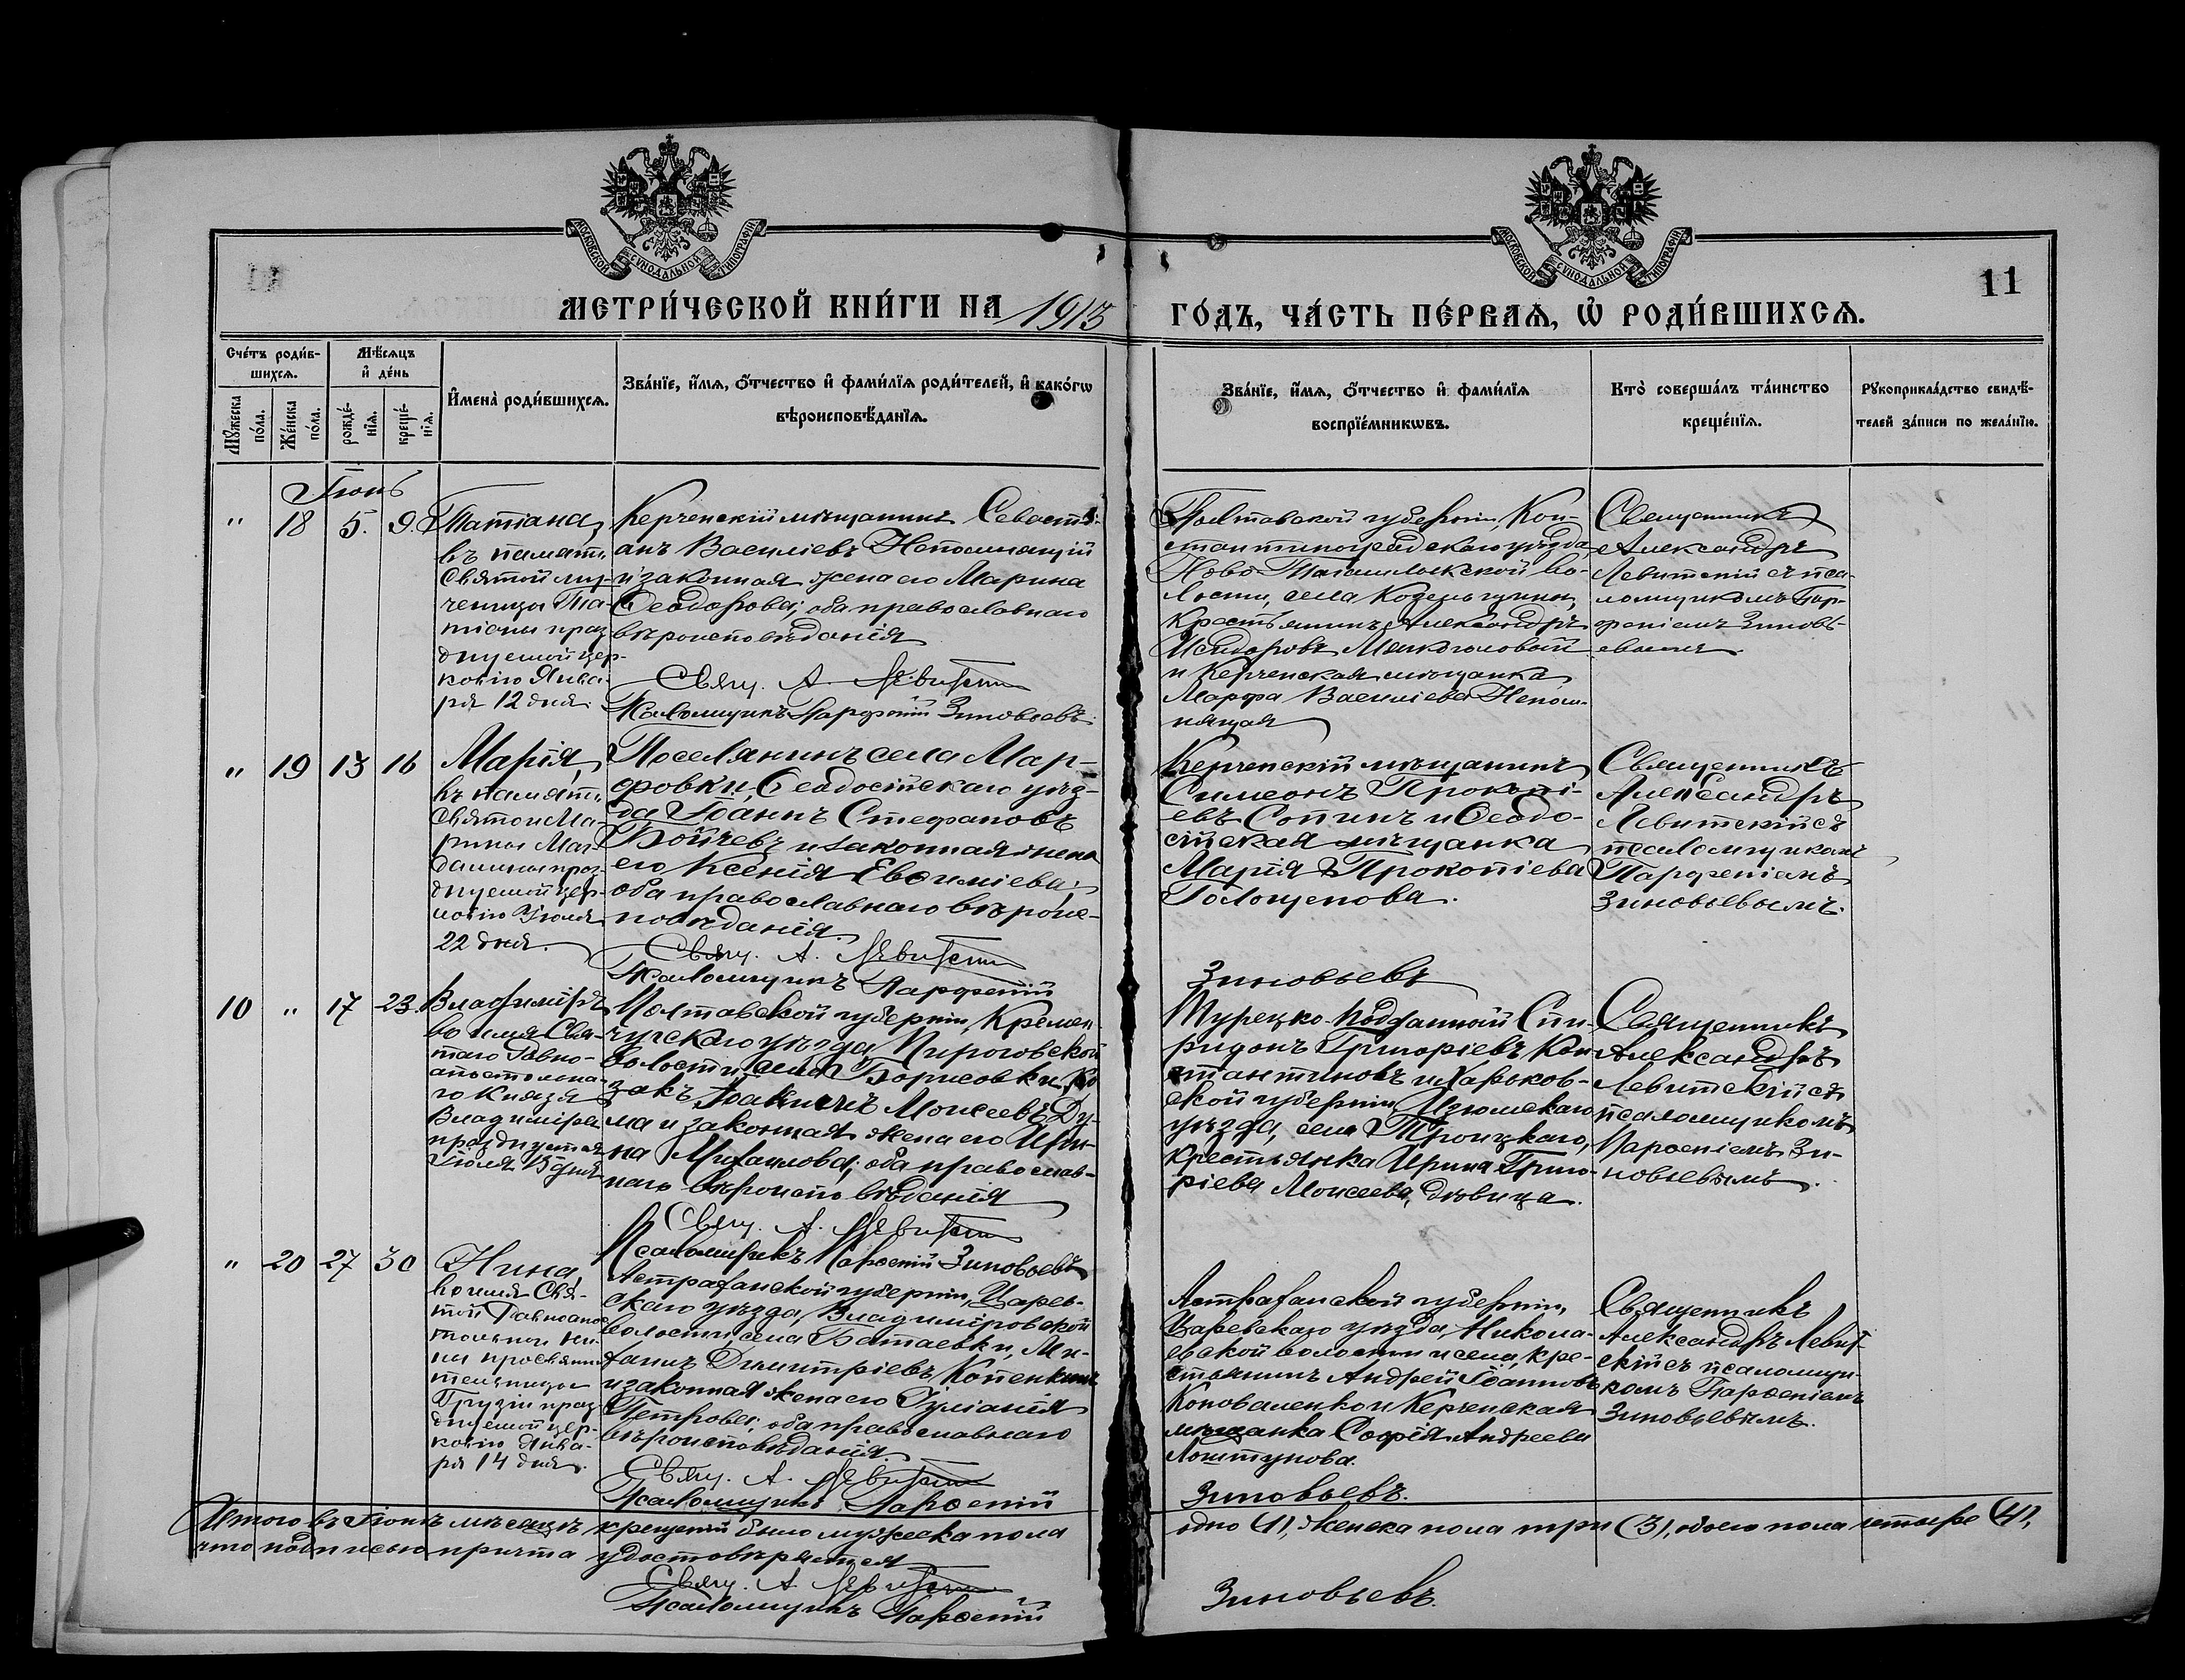 МОСКОВСКОЙ СѴНОДАЛЬНОЙ ТИПОГРАФІИ
МОСКОВСКОЙ СѴНОДАЛЬНОЙ ТИПОГРАФІИ
11
МЕТРИ́ЧЕСКОЙ КНИ́ГИ НА 1913
ГО́ДЪ, ЧА́СТЬ ПЕ́РВАѦ, Ѡ҆ РОДИ́ВШИХСѦ.
Сче́тъ роди́в-
шихсѧ.
Мѣ́сѧцъ
и҆ де́нь
Мꙋ́жеска
по́ла.
Же́нска
по́ла.
рожде́-
нїѧ.
креще́-
нїѧ.
И҆мена̀ роди́вшихсѧ.
Зва́нїе, и҆́мѧ, ѻ҆́тчество и҆ фами́лїѧ роди́телей, и҆ како́гѡ
вѣроисповѣ́данїѧ.
Зва́нїе, и҆́мѧ, ѻ҆́тчество и҆ фами́лїѧ
воспрїе́мникѡвъ.
Кто̀ соверша́лъ та́инство
креще́нїѧ.
Рꙋкоприкла́дство свидѣ́-
телей за́писи по жела́нїю.
Іюнь
" 18 5. 9.
Татіана,
въ память
Святой му-
ченицы Та-
тіаны праз
днуемой цер-
ковію Янва-
ря 12 дня.
Керченскій мѣщанинъ Севасті-
анъ Василіевъ Непомнящій
и законная жена его Марина
Ѳеодорова; оба православнаго
вѣроисповѣданія
Свящ. А. Левитскій
Псаломщикъ Парфеній Зиновьевъ.
Полтавской губерніи, Кон-
стантиноградскаго уѣзда
Ново-Тагамлыкской во-
лости, села Козельщины,
крестьянинъ Александръ
Исидоровъ Малоголовый
и Керченская мѣщанка
Марфа Василіева Непом-
нящая
Священникъ
Александръ
Левитскій съ пса-
ломщикомъ Пар-
феніемъ Зиновь-
евымъ.
" 19 13 16
Марія,
въ память
Святой Ма-
ріины Маг-
далины праз-
днуемой цер-
ковію Іюля
22 дня.
Поселянинъ села Мар-
фовки, Ѳеодосійскаго уѣз-
да Іоаннъ Стефановъ
Бойчевъ и законная жена
его Ксенія Евѳиміева;
оба православнаго вѣроис-
повѣданія.
Свящ. А. Левитскій
Псаломщикъ Парфеній
Зиновьевъ
Керченскій мѣщанинъ
Симеонъ Прокопі-
евъ Сопинъ и Ѳеодо-
сійская мѣщанка
Марія Прокопіева
Голощепова.
Священникъ
Александръ
Левитскій съ
псаломщикомъ
Парфеніемъ
Зиновьевымъ.
10 " 17 23.
Владиміръ
во имя Свя-
таго Равно-
апостольна-
го Князя
Владиміра
празднуется
Іюля 15 дня
Полтавской губерніи, Кремен-
чугскаго уѣзда, Пироговской
волости, села Борисовки, Ко
закъ Іоакимъ Моисеевъ Ду-
ма и законная жена его Ири-
на Михаилова; оба православ-
наго вѣроисповѣданія
Свящ. А. Левитскій
Псаломщикъ Парѳеній Зиновьевъ
Турецко-подданный Спи-
ридонъ Григоріевъ Кон-
стантиновъ и Харьков-
ской губерніи, Изюмскаго
уѣзда, села Троицкаго,
крестьянка Ирина Григо-
ріева Моисеева, дѣвица.
Священникъ
Александръ
Левитскій съ
псаломщикомъ
Парѳеніемъ Зи-
новьевымъ.
" 20 27 30
Нина,
во имя Свя-
той Равноапос
тольной Ни-
ны просвѣти
тельницы
Грузіи праз
днуемой цер-
ковію Янва-
ря 14 дня.
Астраханской губерніи, Царев-
скаго уѣзда, Владиміровской
волости, села Батаевки, Ми-
хаилъ Димитріевъ Копенкинъ
и законная жена его Іуліанія
Петрова; оба православнаго
вѣроисповѣданія.
Свящ. А. Левитскій
Псаломщикъ Парѳеній
Зиновьевъ.
Астраханской губерніи,
Царевскаго уѣзда, Никола-
евской волости и села, кре-
стьянинъ Андрей Іоанновъ
Коноваленко и Керченская
мѣщанка Софія Андреева
Лоштунова.
Священникъ
Александръ Левит-
скій съ псаломщи-
комъ Парѳеніемъ
Зиновьевымъ.
Итого въ Іюнѣ мѣсяцѣ крещеній было мужеска пола одно (1), женска пола три (3), обоего пола четыре (4),
что подписью причта удостовѣряется
Свящ. А. Левитскій
Псаломщикъ Парѳеній
Зиновьевъ.